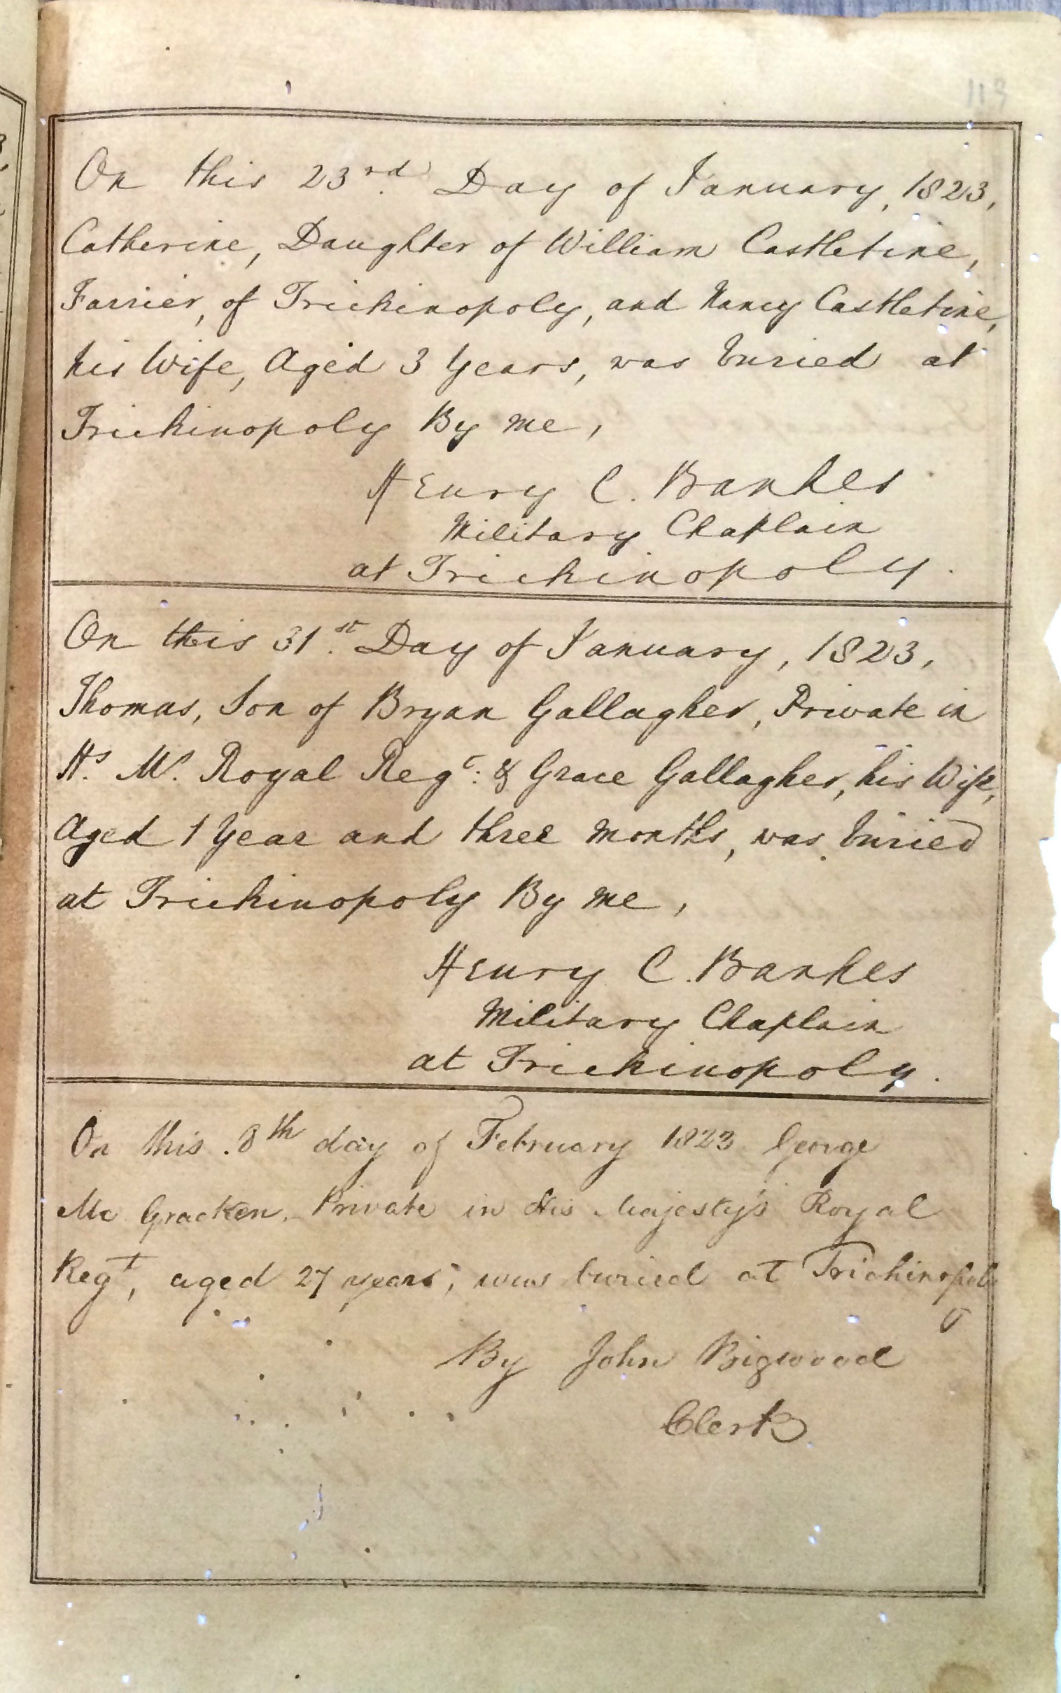 113
On this 23rd. Day of January, 1823,
Catherine, Daughter of William Castletine,
Farrier, of Trichinopoly, and Nancy Castletine,
his Wife, Aged 3 Years, was buried at
Trichinopoly By me,
Henry C. Bankes
Military Chaplain
at Trichinopoly.
On this 31st. Day of January, 1823,
Thomas, Son of Bryan Gallagher, Private in
Hs. Ms. Royal Regt: & Grace Gallagher, his Wife,
Aged 1 Year and three months, was buried
at Trichinopoly By me,
Henry C. Bankes
Military Chaplain
at Trichinopoly.
On this 8th day of February 1823 George
Mc Gracken, Private in His Majesty's Royal
Regt, aged 27 years, was buried at Trichinopoly
By John Bigwood
Clerk